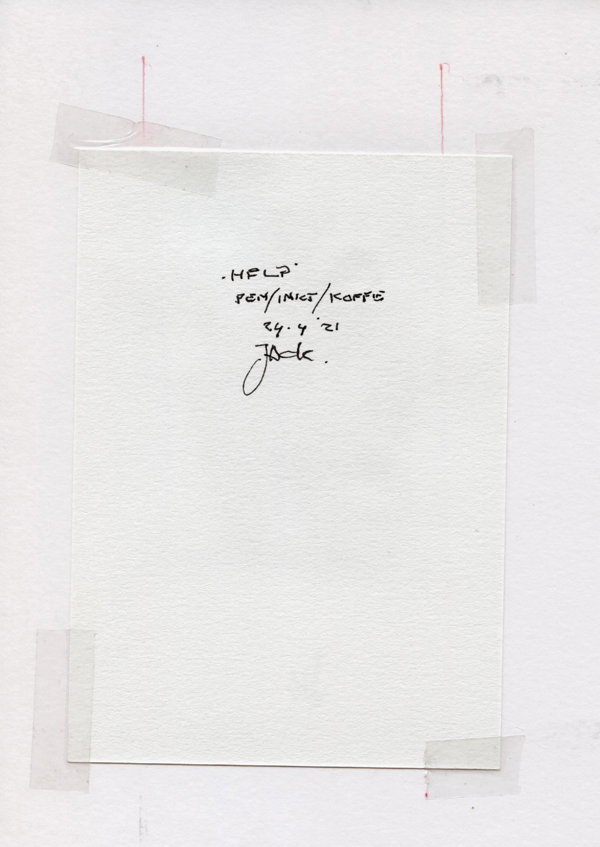 "HELP"
PEN/INKT/KOFFIE
24.4 '21
Jack.